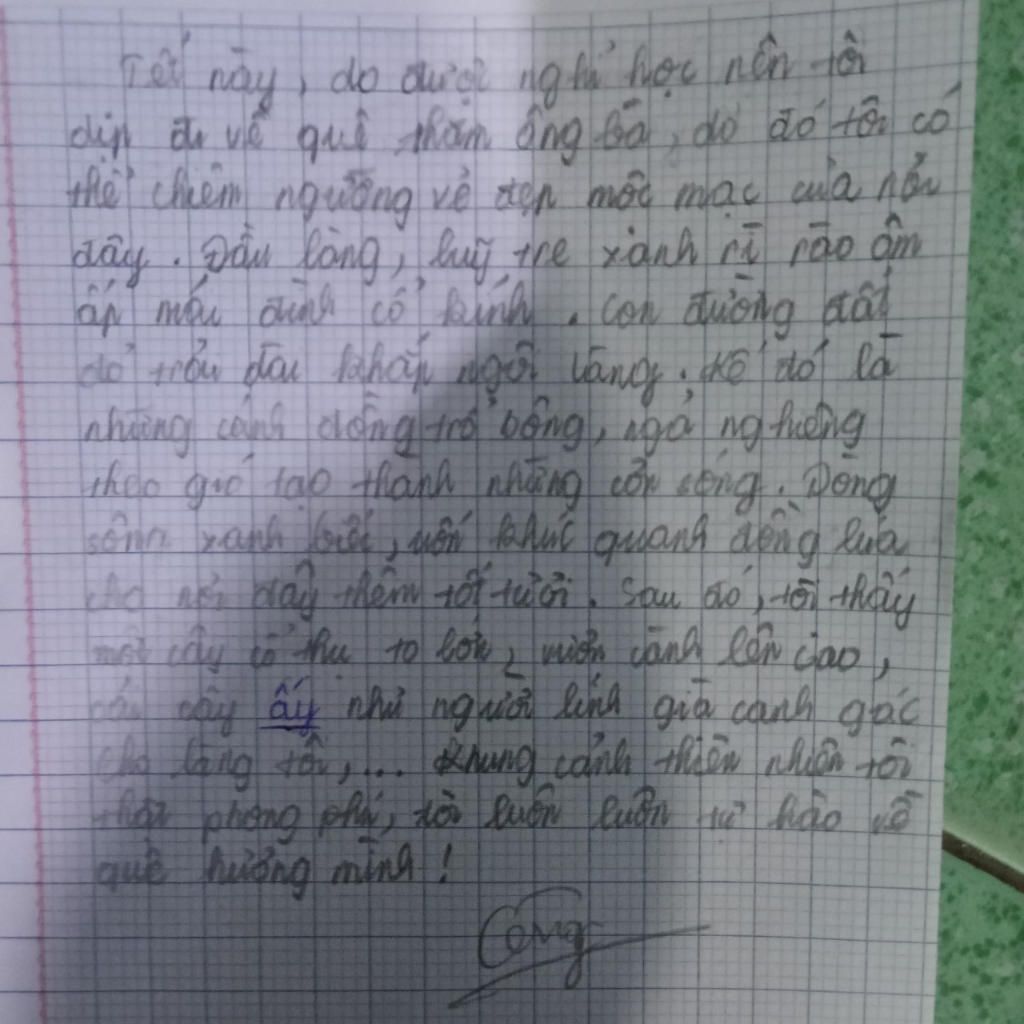 Tết này, do được nghỉ học nên tôi
dịp đi về quê thăm ông bà, do đó tôi có
thể chiêm ngưỡng vẻ đẹp mộc mạc của nơi
đây. Đầu làng, luỹ tre xanh rì rào ôm
ấp mấu đình cổ kính. Con đường đất
đỏ trải dài khắp ngôi làng. Kế đó là
những cánh đồng trổ bông, ngả nghiêng
theo gió tạo thành những cơn sóng. Dòng
sông xanh biếc, uốn khúc quanh đồng lúa
cho nơi đây thêm tốt tươi. Sau đó, tôi thấy
một cây cổ thụ to lớn, vươn cành lên cao,
cái cây ấy như người lính già canh gác
cho làng tôi,... Khung cảnh thiên nhiên tôi
thật phong phú, tôi luôn luôn tự hào về
quê hương mình!
Công